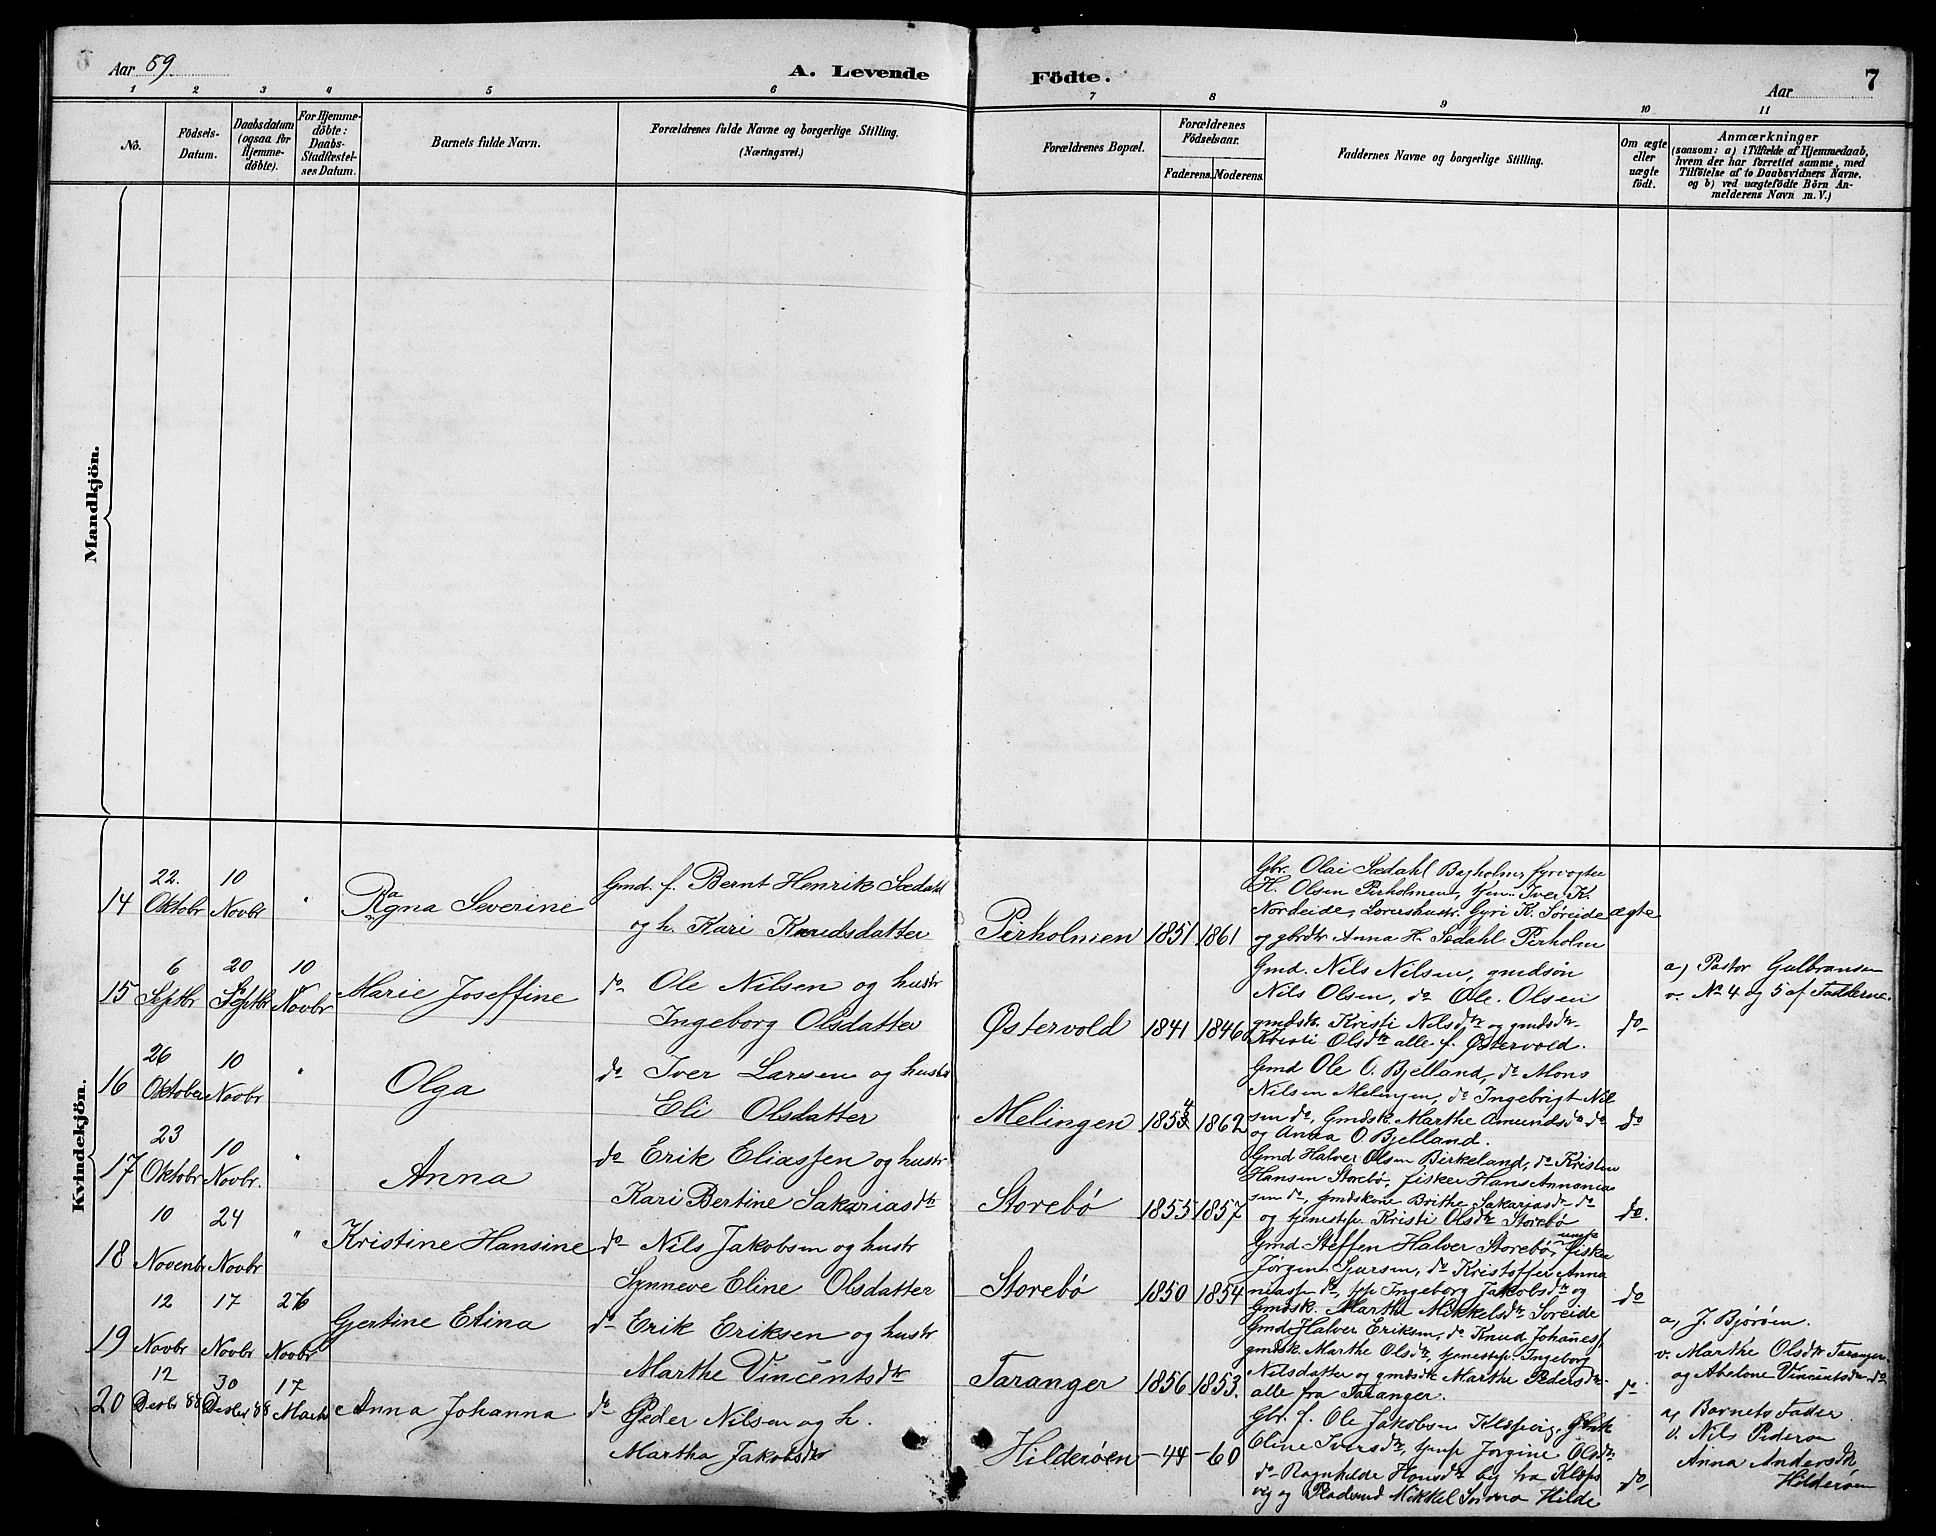 Aar 89
A. Levende
Födte.
7
Aar
1 2 3 4 5 6 7 8 9 10 11
No.
Födsels-
Datum.
Daabsdatum
(ogsaa for
Hjemme-
döbte).
For Hjemme-
döbte:
Daabs-
Stadfæstel-
ses Datum.
Barnets fulde Navn.
Forældrenes fulde Navne og borgerlige Stilling.
(Næringsvei.)
Forældrenes Bopæl.
Forældrenes
Födselsaar.
Faderens. Moderens.
Faddernes Navne og borgerlige Stilling.
Om ægte
eller
uægte
födt.
Anmærkninger
(saasom: a) i Tilfælde af Hjemmedaab,
hvem der har forrettet samme, med
Tilföielse af to Daabsvidners Navne.
og b) ved uægtefödte Börn An-
melderens Navn m. V.)
Mandkjön.
Kvindekjön.
14
22.
Oktobr
10
Novbr
"
Ragna Severine
Gmd. f. Bernt Henrik Sædahl
og h. Kari Knudsdatter
Pirholmen 1851 1861
Gbr. Olai Sædahl Bagholm, fyrvogter
H. Olsen Pirholmen, tjen. Iver K.
Nordeide, Lærershustr. Gyri K. Söreide
og gbrdtr Anna H. Sædahl Pirholm
ægte
15
6
Septbr
20
Septbr
10
Novbr
Marie Joseffine
do Ole Nilsen og hustr
Ingeborg Olsdatter
Østervold 1841 1846
Gmd. Nils Nilsen, gmdsön
Nils Olsen, do Ole Olsen
gmdsk. Kristi Nilsdtr og gmdsdtr
Kristi Olsdtr alle f. Østervold.
do
a) Pastor Gulbransen
v. No 4 og 5 af Fadderne.
16
26
Oktober
10
Novbr
"
Olga
do Iver Larsen og hustr
Eli Olsdatter
Melingen 1854 1862
Gmd Ole O. Bjelland, do Mons
Nilsen Melingen, do Ingebrigt Nil
sen do, Gmdsk. Marthe Amundsdr do
og Anna O. Bjelland.
do
17
23
Oktobr
10
Novbr.
"
Anna
do Erik Eliassen og hustr
Kari Bertine Sakariasdtr
Storebö 1855 1857
Gmd Halver Olsen Birkeland, do Kristen
Hansen Storebö, fisker Hans Annanias
sen do, Gmdskone Brithe Sakariasdr do
og tjenestep. Kristi Olsdtr Storebö
do.
18
10
Novenbr
24
Novbr
"
Kristine Hansine
do Nils Jakobsen og hustr
Synneve Eline Olsdatter
Storebö 1850 1854
Gmd Steffen Halver Storebö, fisker
Jörgen Sjursen, do Kristoffer Anna
niassen do, tjp Ingeborg Jakobsdtr og
Gmdsk. Marthe Mikkelsdtr Söreide
do
19
12
Novbr
17
Novbr
26
Novbr
Gjertine Elina
do Erik Eriksen og hustr
Marthe Vincentsdtr
Taranger 1856 1853.
Gmd Halver Eriksen, do Knud Johaness,
gmdsk. Marthe Olsdtr, tjenestep. Ingeborg
Nilsdatter og gmdsdtr Marthe Pedersdtr
alle fra Taranger.
do
a, J. Bjørøen.
v. Marthe Olsdtr Taranger
og Abelone Vincentsdtr do
20
12
Decbr 88
30
Decber 88
17
Marts
Anna Johanna
do Peder Nilsen og h.
Martha Jakobsdtr
Hilderöen -44 -60
Gbr. f. Ole Jakobsen Klæpsvig,
Oline Iversdtr, tjenp Jorgine Olsdtr
do Ragnhilde Hansdtr beg fra Klæps
vig og Mikkel Hilde
do
a, Barnets Fader
v. Nils Pederson
Anna Andersdtr
Hilderöen